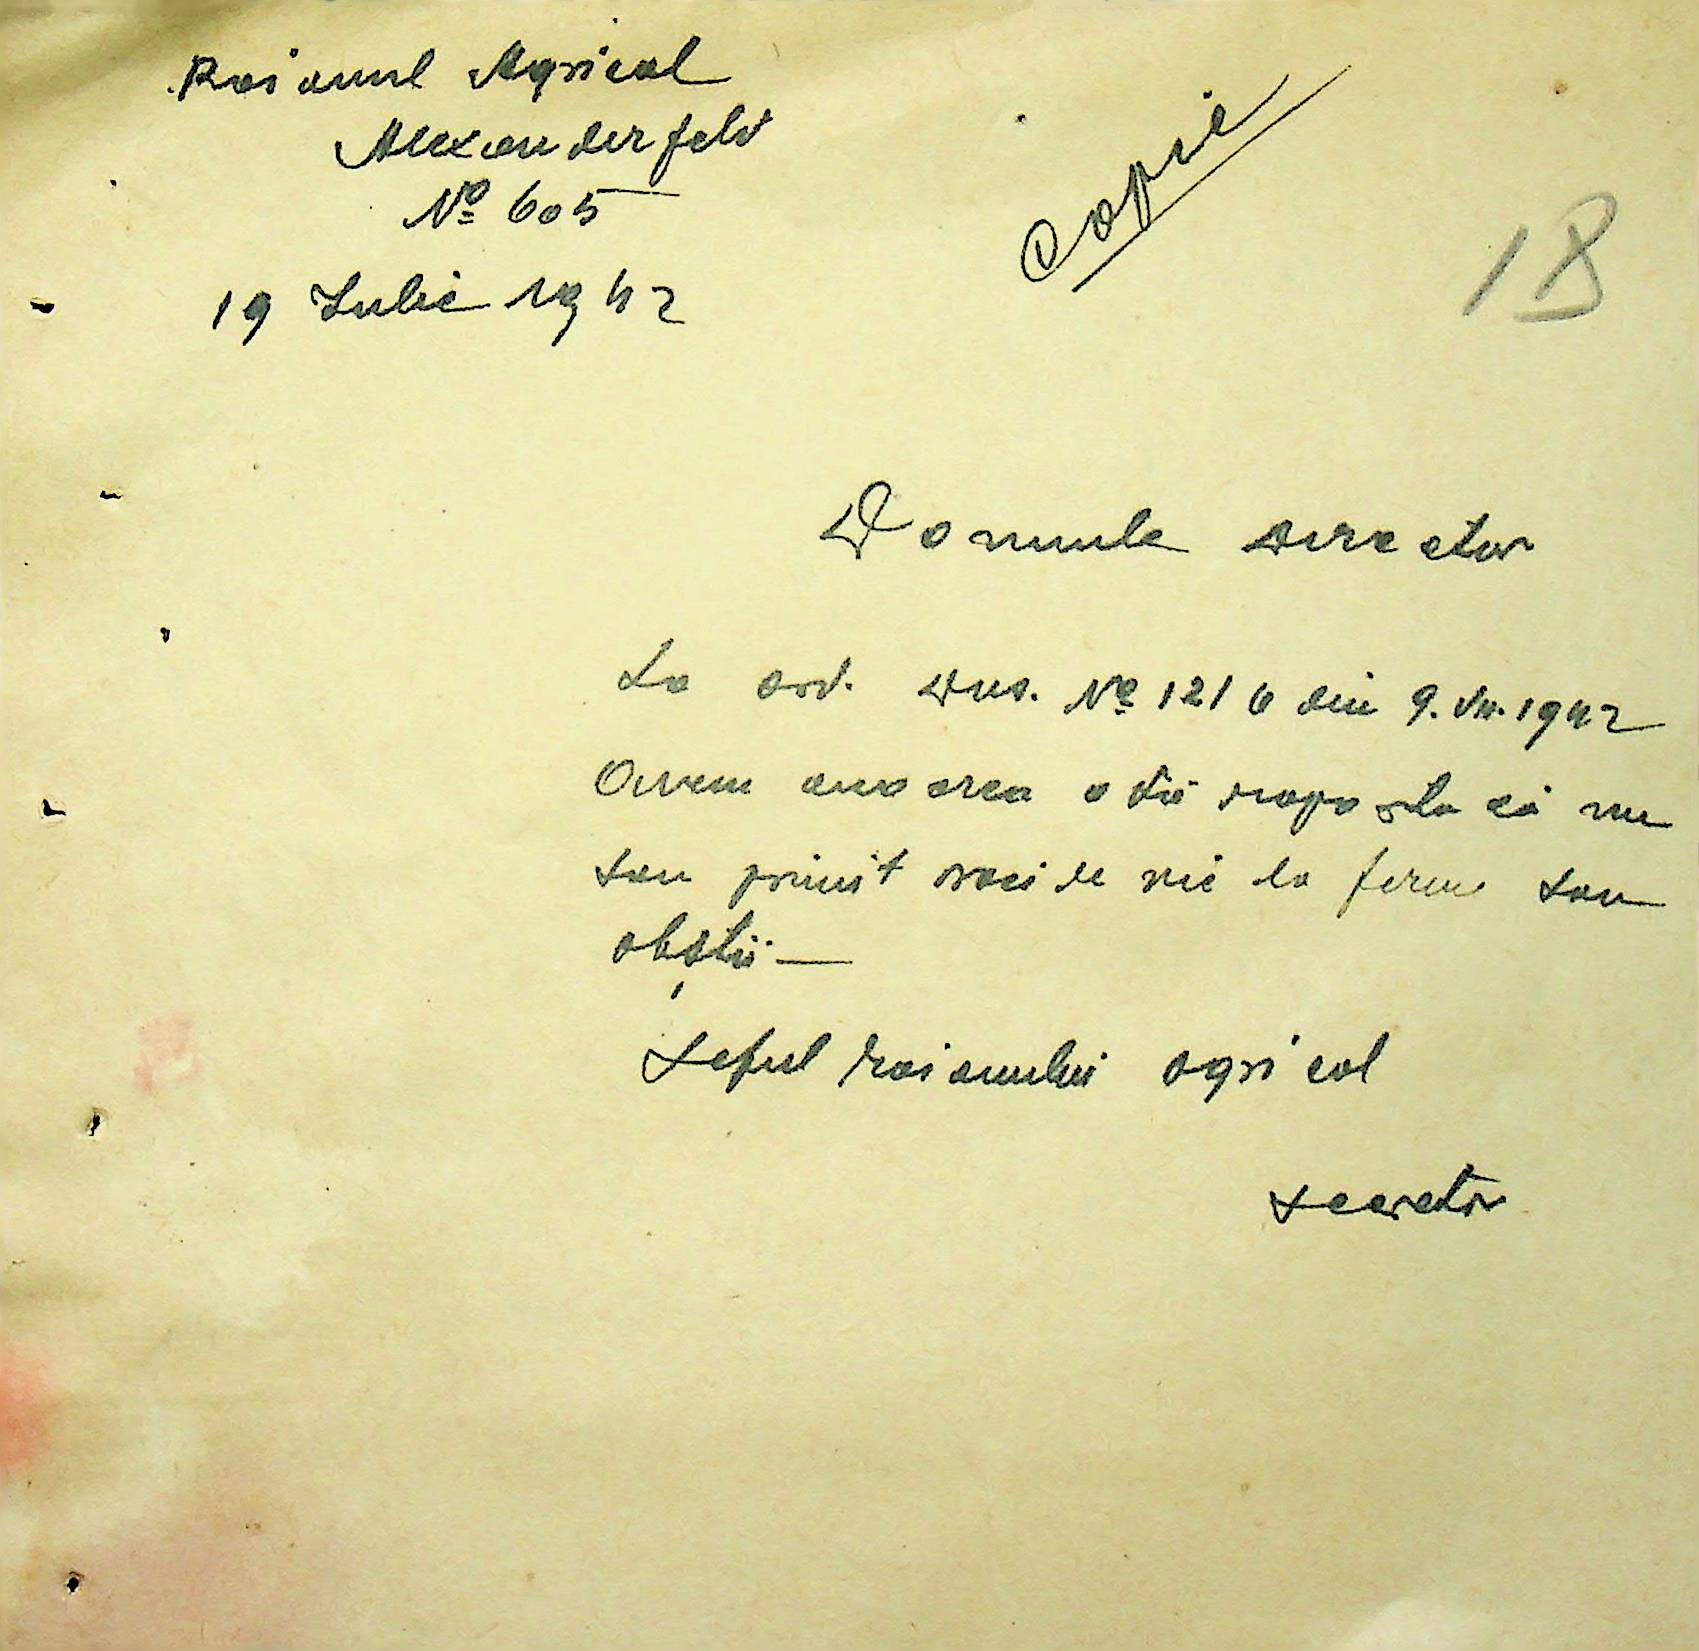 Raionul Agricol
Alexanderfeld
No 605
19 Iulie 1942
Copie
18
Domnule Director
La ord. Dvs. No 1216 din 9.VII.1942
Avem onoarea a vă raporta că nu
sau primit vaci de vie la ferme sau
obștii —
Șeful raionului agricol
Secretar